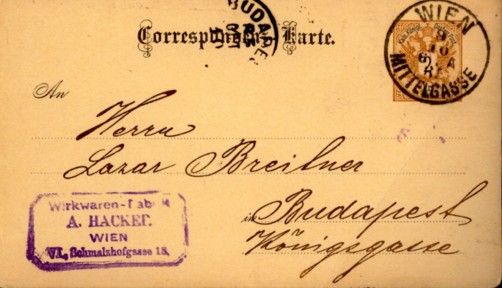 Correspondenz-Karte.
BUDAPEST
WIEN
MITTELGASSE
An
Herrn
Lazar Breitner
in Budapest
Königsgasse
Wirkwaren-Fabrik
A. HACKER.
WIEN
VI., Schmalzhofgasse 18.